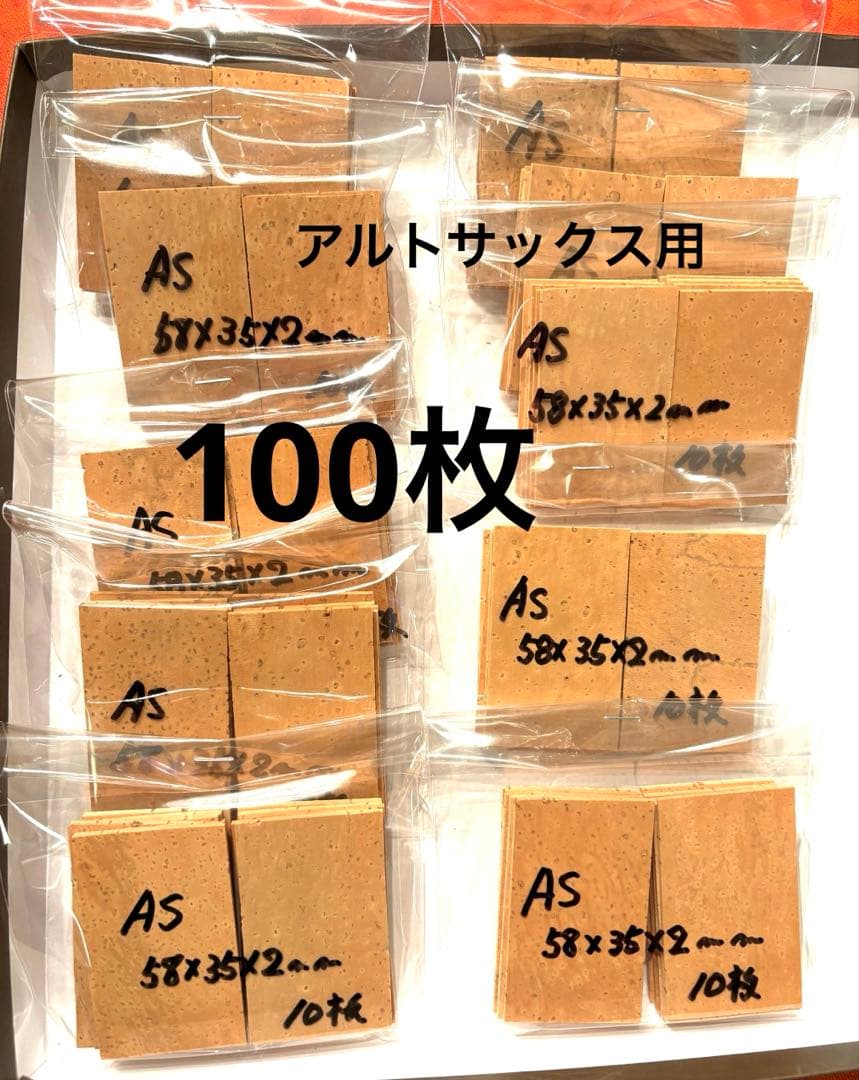 AS
AS
アルトサックス用
AS
58×35×2mm
AS
58×35×2mm
10枚
100枚
AS
58×35×2mm
AS
58×35×2mm
10枚
AS
AS
58×35×2mm
10枚
AS
58×35×2mm
10枚